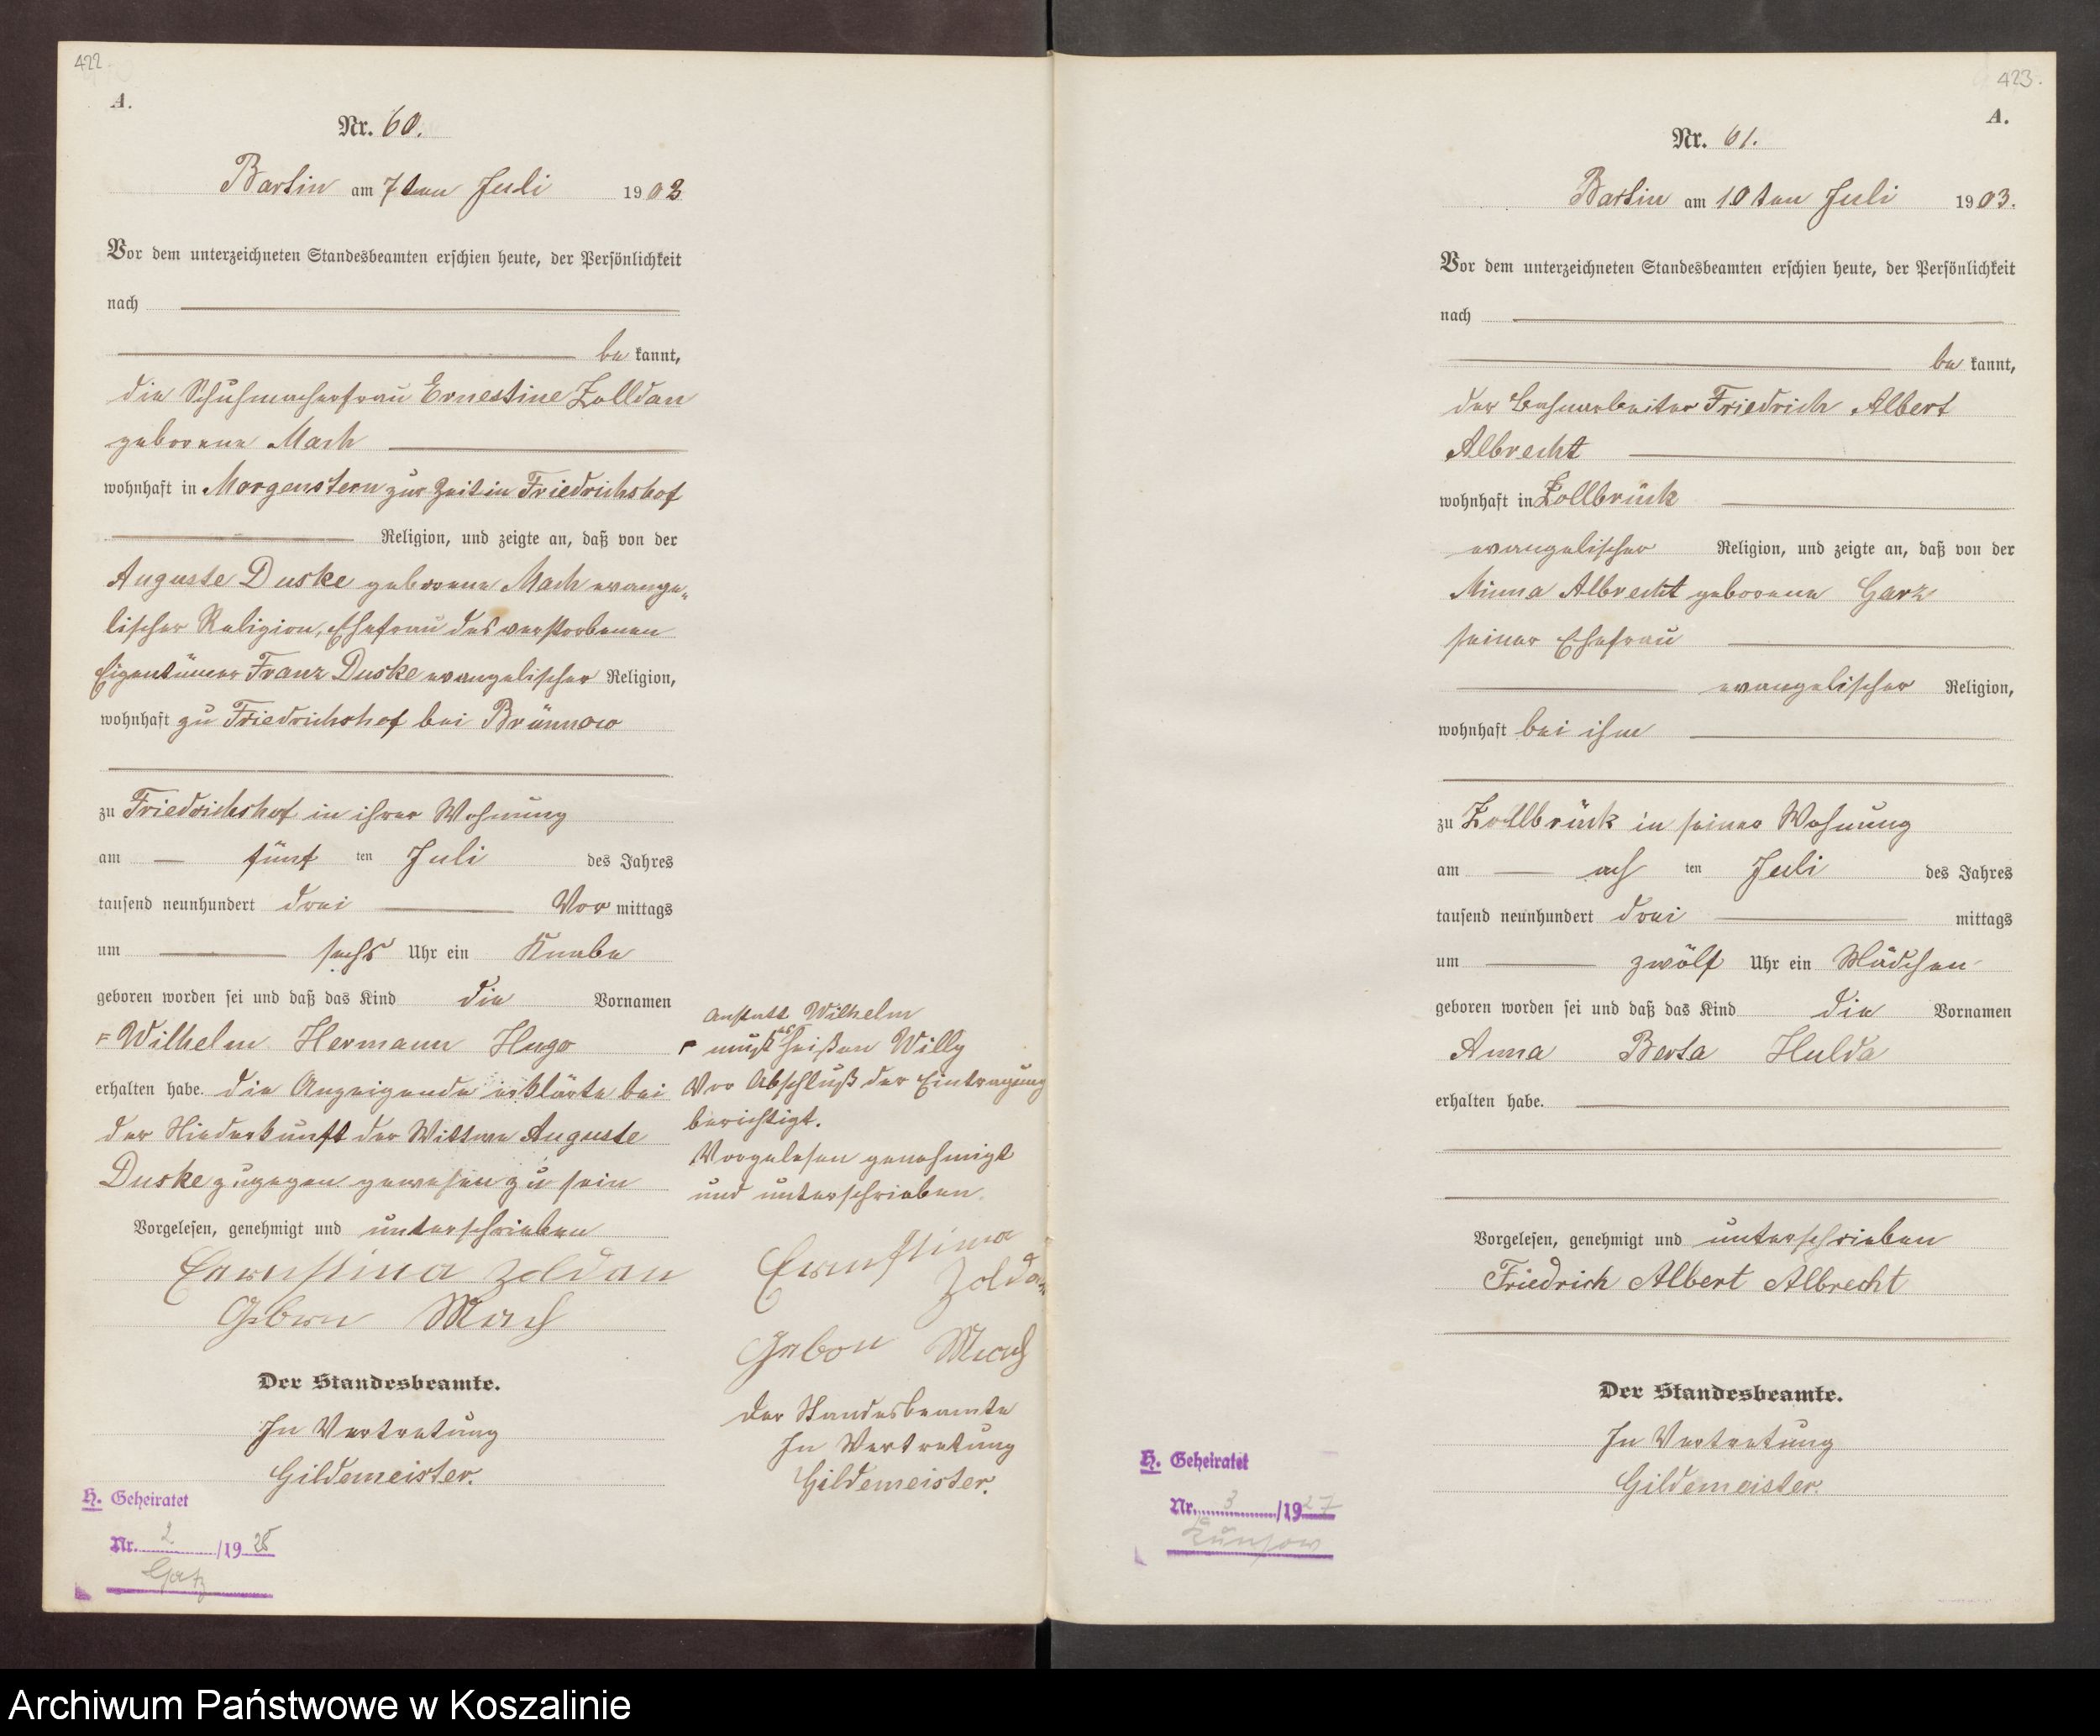 422
A.
Nr. 60.
Bartin am 7ten Juli 1903
Vor dem unterzeichneten Standesbeamten erschien heute, der Persönlichkeit
nach
be kannt,
die Schuhmacherfrau Ernestine Zolldan
geborene Mach
wohnhaft in Morgenstern zur Zeit in Friedrichshof
Religion, und zeigte an, daß von der
Auguste Duske geborene Mach evange-
lischer Religion, Ehefrau des verstorbenen
Eigentümer Franz Duske evangelischer Religion,
wohnhaft zu Friedrichshof bei Brünnow
zu Friedrichshof in ihrer Wohnung
am fünf ten Juli des Jahres
tausend neunhundert drei Vor mittags
um sechs Uhr ein Knabe
geboren worden sei und daß das Kind die Vornamen
Wilhelm Hermann Hugo
erhalten habe. die Anzeigende erklärte bei
der Niederkunft der Wittwe Auguste
Duske zugegen gewesen zu sein
Vorgelesen, genehmigt und unterschrieben
Ernestine Zoldan
Geborn Mach
Der Standesbeamte.
In Vertretung
Gildemeister.
H. Geheiratet
Nr. 2 /19 28
Gatz
anstatt Wilhelm
muß es heißen Willy
Vor Abschluß der Eintragung
berichtigt.
Vorgelesen genehmigt
und unterschrieben.
Ernestine
Zoldan
Gebon Mach
Der Standesbeamte
In Vertretung
Gildemeister.
423.
A.
Nr. 61.
Bartin am 10ten Juli 1903.
Vor dem unterzeichneten Standesbeamten erschien heute, der Persönlichkeit
nach
be kannt,
der Bahnarbeiter Friedrich Albert
Albrecht
wohnhaft in Zollbrück
evangelischer Religion, und zeigte an, daß von der
Minna Albrecht geborene Garz
seiner Ehefrau
evangelischer Religion,
wohnhaft bei ihm
zu Zollbrück in seiner Wohnung
am ach ten Juli des Jahres
tausend neunhundert drei mittags
um zwölf Uhr ein Mädchen
geboren worden sei und daß das Kind die Vornamen
Anna Berta Hulda
erhalten habe.
Vorgelesen, genehmigt und unterschrieben
Friedrich Albert Albrecht
Der Standesbeamte.
In Vertretung
Gildemeister.
H. Geheiratet
Nr. 3 /1927
Kunsow
Archiwum Państwowe w Koszalinie